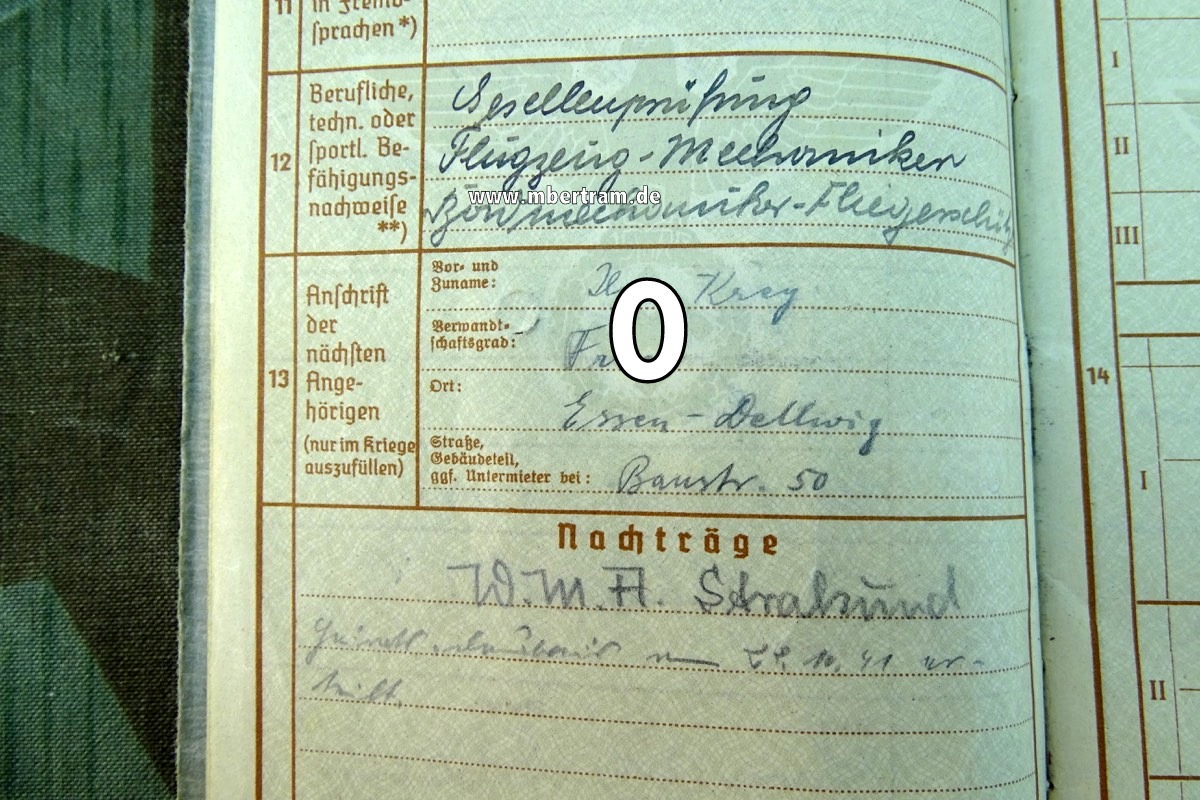 11
in Fremd-
sprachen *)
12
Berufliche,
techn. oder
sportl. Be-
fähigungs-
nachweise
**)
Gesellenprüfung
Flugzeug-Mechaniker
Bordmechaniker-Fliegerschütz
www.mbertram.de
13
Anschrift
der
nächsten
Ange-
hörigen
(nur im Kriege
auszufüllen)
Vor- und
Zuname:
Krey
Verwandt-
schaftsgrad:
Ort:
Essen-Dellwig
Straße,
Gebäudeteil,
ggf. Untermieter bei: Baustr. 50
0
Nachträge
W.M.A. Stralsund
Heiratserlaubnis am 10. 41 er-
teilt.
I
II
III
14
I
II